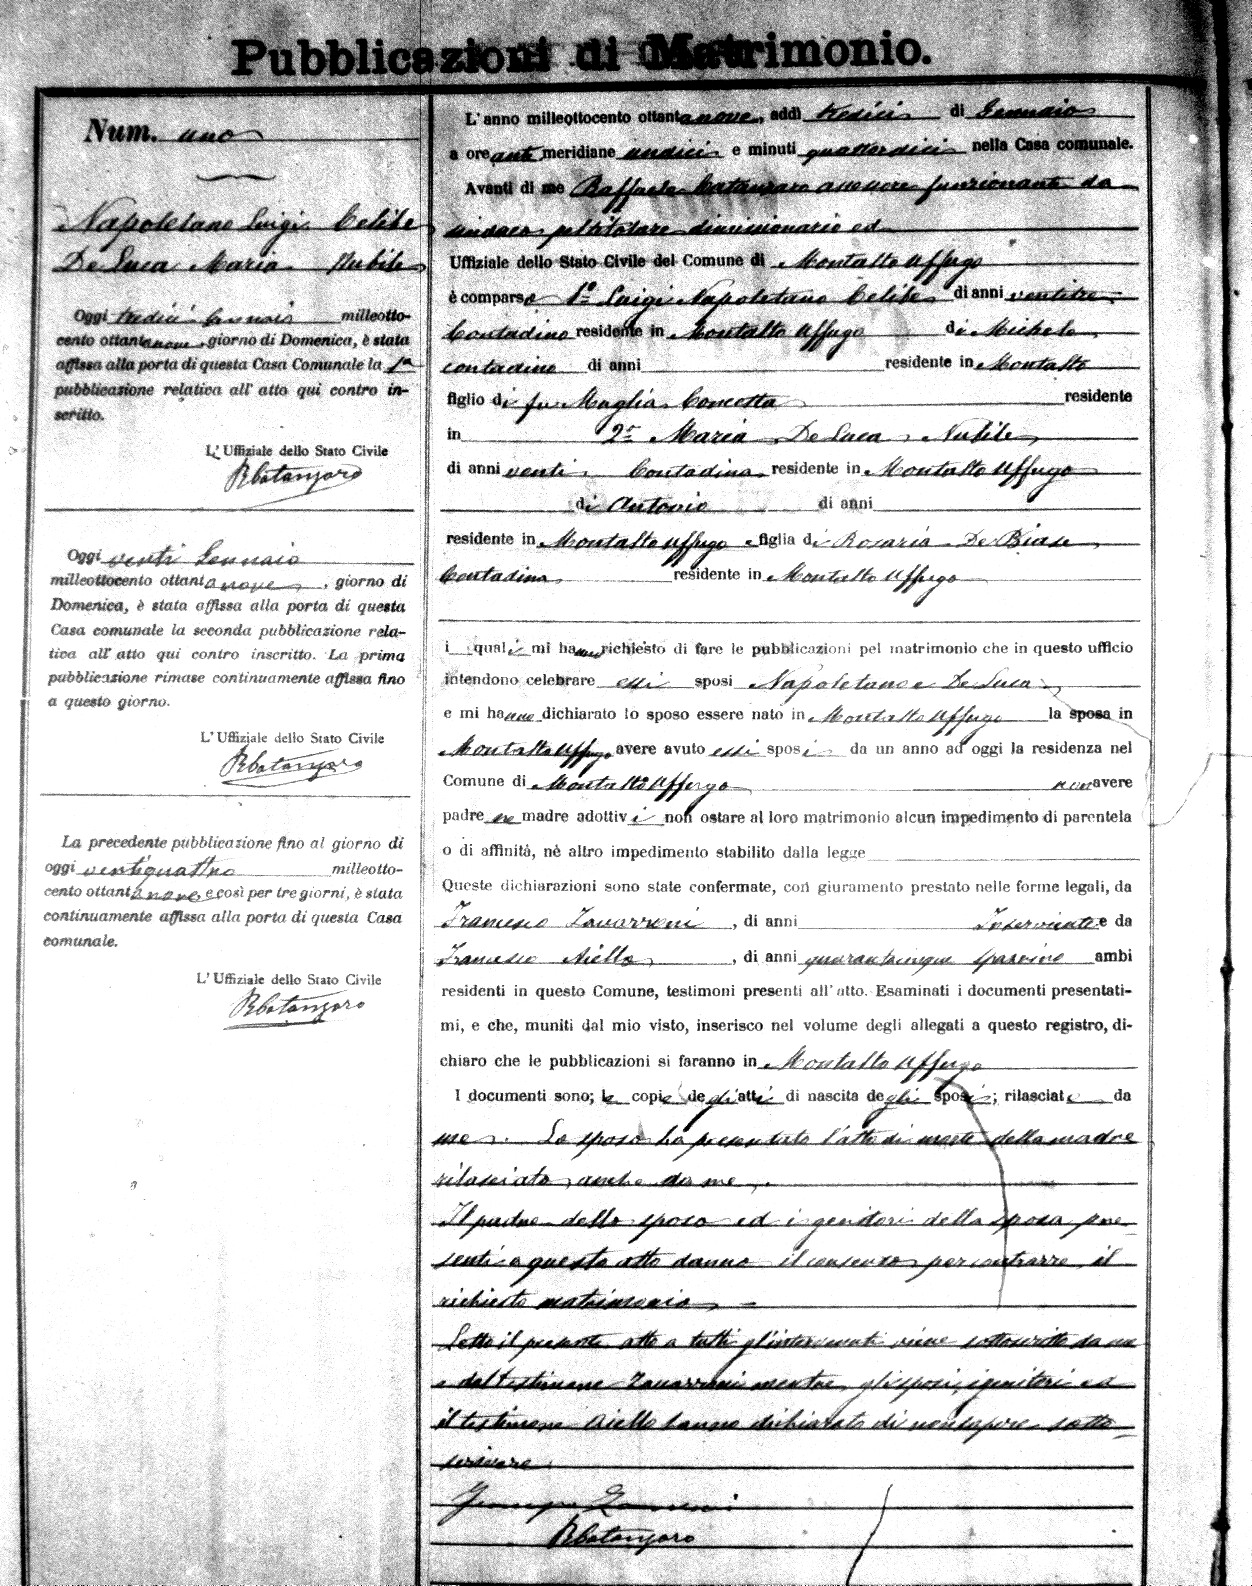 Pubblicazioni di Matrimonio.
Num. uno
Napoletano Luigi Celibe
De Luca Maria Nubile
Oggi tredici Gennaio milleotto-
cento ottantanove, giorno di Domenica, è stata
affissa alla porta di questa Casa Comunale la 1a
pubblicazione relativa all' atto qui contro in-
scritto.
L'Uffiziale dello Stato Civile
RCatanzaro
Oggi venti Gennaio
milleottocento ottantanove, giorno di
Domenica, è stata affissa alla porta di questa
Casa comunale la seconda pubblicazione rela-
tiva all' atto qui contro inscritto. La prima
pubblicazione rimase continuamente affissa fino
a questo giorno.
L'Uffiziale dello Stato Civile
RCatanzaro
La precedente pubblicazione fino al giorno di
oggi ventiquattro milleotto-
cento ottantanove e così per tre giorni, è stata
continuamente affissa alla porta di questa Casa
comunale.
L'Uffiziale dello Stato Civile
RCatanzaro
L'anno milleottocento ottantanove, addì tredici di Gennaio
a ore anti meridiane undici e minuti quattordici nella Casa comunale.
Avanti di me Raffaele Catanzaro assessore funzionante da
sindaco pel titolare dimissionario ed
Uffiziale dello Stato Civile del Comune di Montalto Uffugo
è comparso 1° Luigi Napoletano Celibe di anni ventitre
Contadino residente in Montalto Uffugo di Michele
contadino di anni residente in Montalto
figlio di fu Maglia Concetta residente
in 2° Maria De Luca Nubile
di anni venti Contadina residente in Montalto Uffugo
di Antonio di anni
residente in Montalto Uffugo e figlia di Rosaria De Biase
Contadina residente in Montalto Uffugo
i quali mi hanno richiesto di fare le pubblicazioni pel matrimonio che in questo ufficio
intendono celebrare essi sposi Napoletano e De Luca
e mi hanno dichiarato lo sposo essere nato in Montalto Uffugo la sposa in
Montalto Uffugo avere avuto essi sposi da un anno ad oggi la residenza nel
Comune di Montalto Uffugo non avere
padre ne madre adottivi non ostare al loro matrimonio alcun impedimento di parentela
o di affinità, nè altro impedimento stabilito dalla legge
Queste dichiarazioni sono state confermate, con giuramento prestato nelle forme legali, da
Francesco Zavarroni, di anni Inserviente e da
Francesco Aiello, di anni quarantacinque ambi
residenti in questo Comune, testimoni presenti all'atto. Esaminati i documenti presentati-
mi, e che, muniti dal mio visto, inserisco nel volume degli allegati a questo registro, di-
chiaro che le pubblicazioni si faranno in Montalto Uffugo
I documenti sono; le copie degli atti di nascita degli sposi; rilasciate da
me. Lo sposo ha presentato l'atto di morte della madre
rilasciato anche da me.
Il padre dello sposo ed i genitori della sposa pre-
senti a questo atto danno il consenso per contrarre il
richiesto matrimonio.
Letto il presente atto a tutti gl'intervenuti viene sottoscritto da me
e dal testimone Zavarroni mentre gli sposi, i genitori ed
il testimone Aiello hanno dichiarato di non sapere sotto-
scrivere
Zavarroni
RCatanzaro